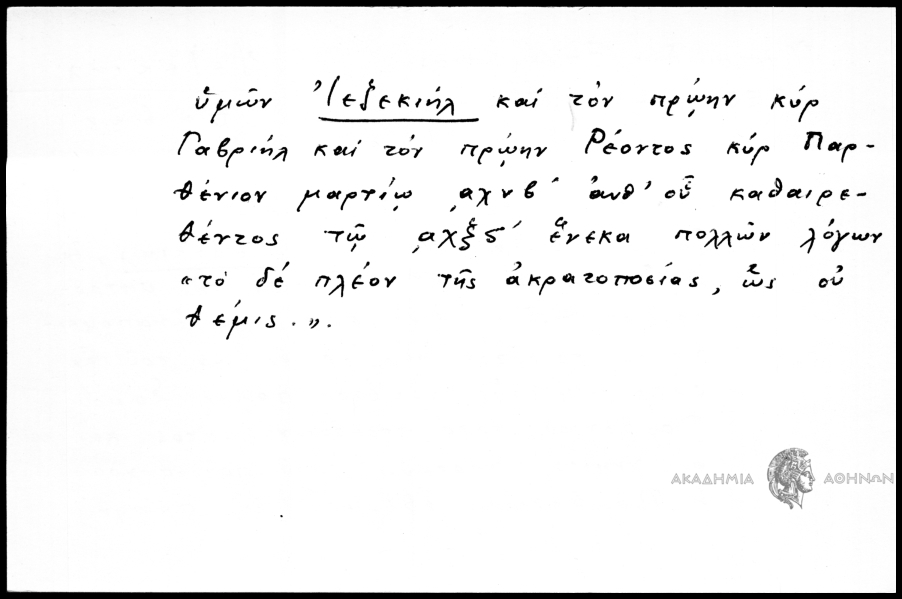 ὑμῶν Ἰεζεκιήλ καί τόν πρῴην κύρ
Γαβριήλ καί τόν πρῴην Ρέοντος κύρ Παρ-
θένιον μαρτίῳ ͵αχνβ´ ἀνθ' οὗ καθαιρε-
θέντος τῷ ͵αχξς´ ἕνεκα πολλῶν λόγων
«τό δέ πλέον τῆς ἀκρατοποσίας, ὡς οὐ
θέμις.».
ΑΚΑΔΗΜΙΑ ΑΘΗΝΩΝ